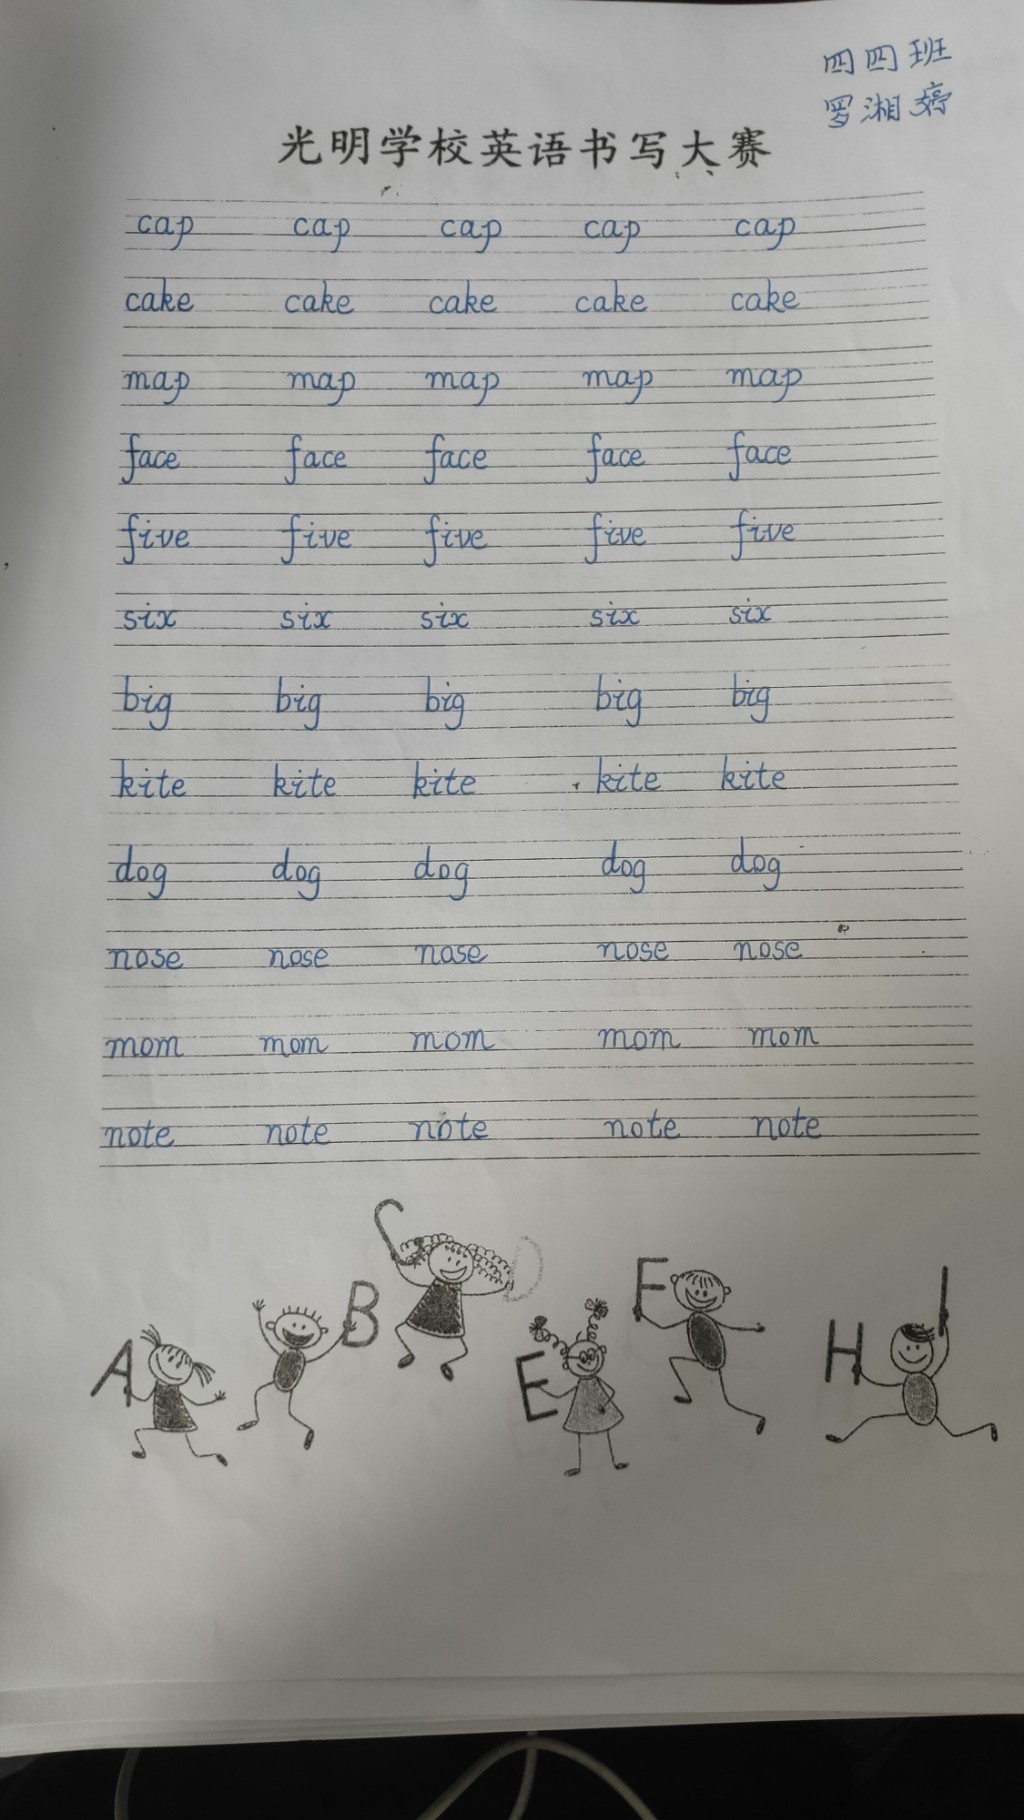 四四班
罗湘婷
光明学校英语书写大赛
cap cap cap cap cap
cake cake cake cake cake
map map map map map
face face face face face
five five five five five
six six six six six
big big big big big
kite kite kite kite kite
dog dog dog dog dog
nose nose nose nose nose
mom mom mom mom mom
note note note note note
A B C D E F H I